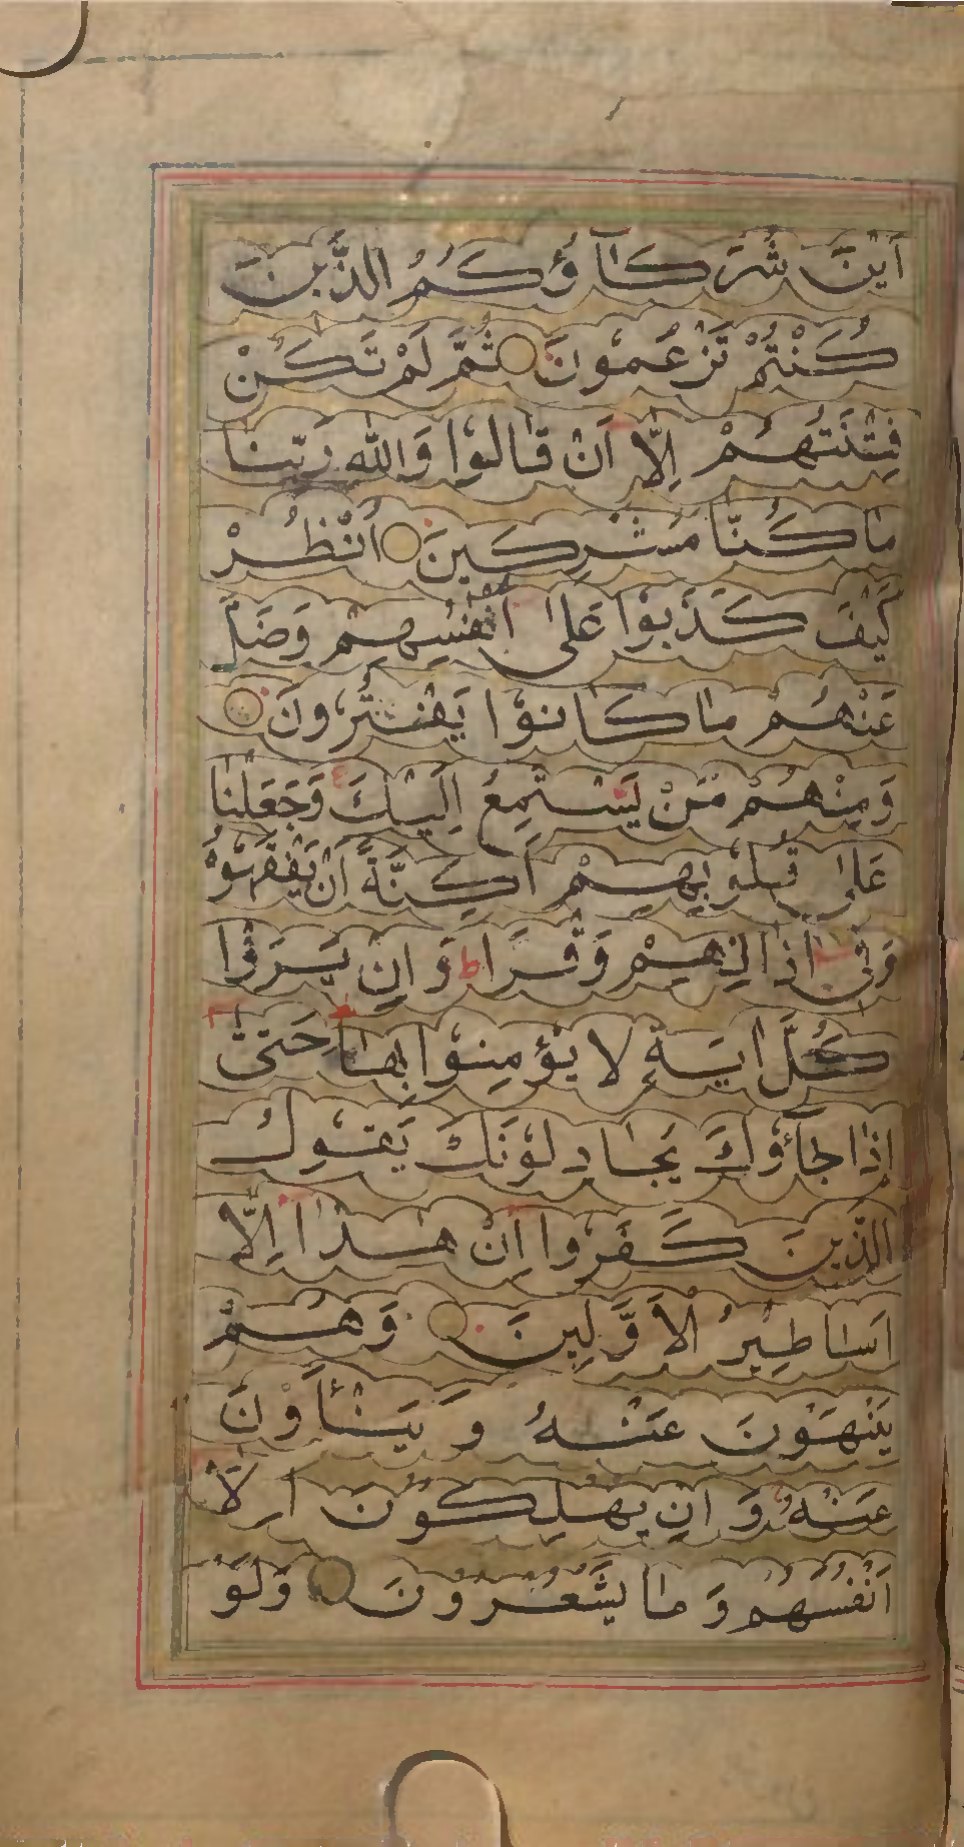 اَيْنَ شُرَكَآؤُكُمُ الَّذٖينَ
كُنْتُمْ تَزْعُمُونَ ثُمَّ لَمْ تَكُنْ
فِتْنَتُهُمْ اِلَّا اَنْ قَالُوا وَاللّٰهِ رَبِّنَا
مَا كُنَّا مُشْرِكٖينَ اُنْظُرْ
كَيْفَ كَذَبُوا عَلٰى اَنْفُسِهِمْ وَضَلَّ
عَنْهُمْ مَا كَانُوا يَفْتَرُونَ
وَمِنْهُمْ مَنْ يَسْتَمِعُ اِلَيْكَ وَجَعَلْنَا
عَلٰى قُلُوبِهِمْ اَكِنَّةً اَنْ يَفْقَهُوهُ
وَفٖى اٰذَانِهِمْ وَقْرًا ط وَاِنْ يَرَوْا
كُلَّ اٰيَةٍ لَا يُؤْمِنُوا بِهَا ط حَتّٰى
اِذَا جَآؤُكَ يُجَادِلُونَكَ يَقُولُ
الَّذٖينَ كَفَرُوا اِنْ هٰذَا اِلَّا
اَسَاطٖيرُ الْاَوَّلٖينَ وَهُمْ
يَنْهَوْنَ عَنْهُ وَيَنْأَوْنَ
عَنْهُ وَاِنْ يُهْلِكُونَ اِلَّا
اَنْفُسَهُمْ وَمَا يَشْعُرُونَ وَلَوْ